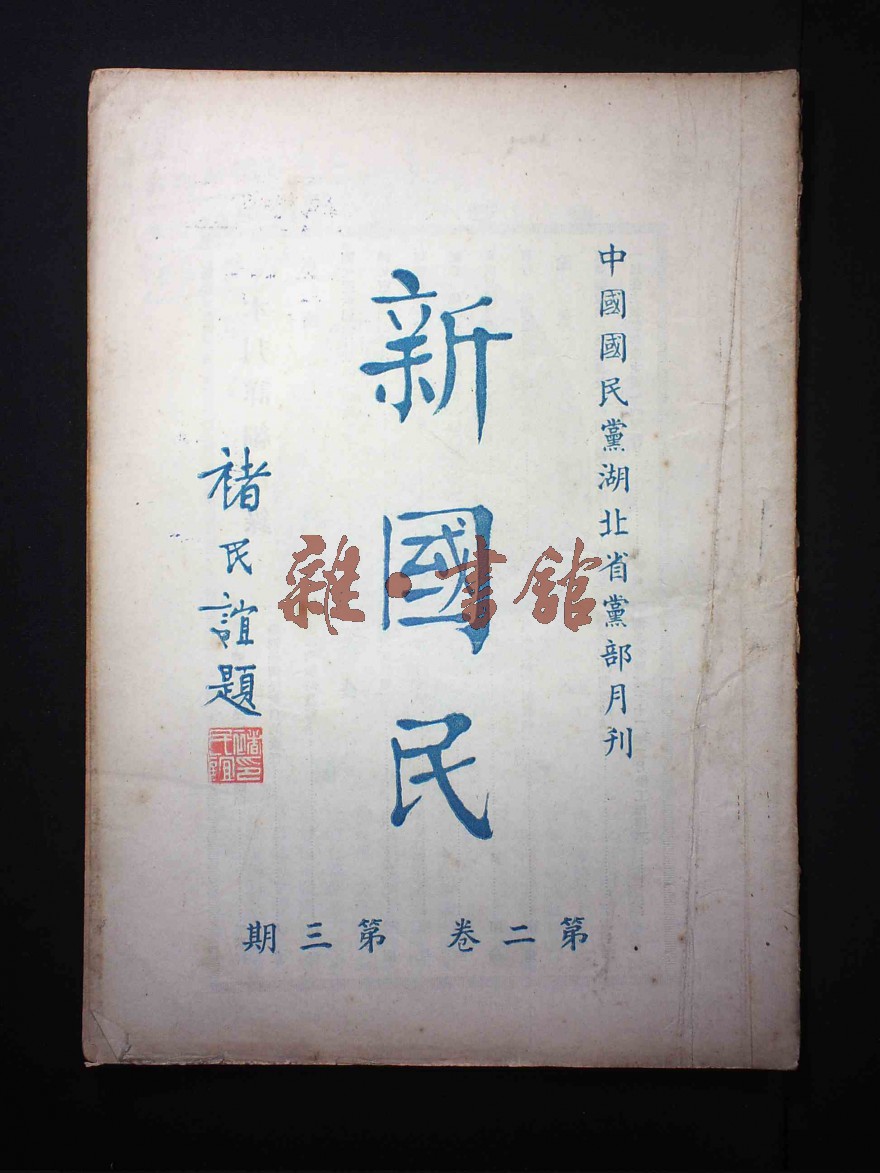 中國國民黨湖北省黨部月刊
新國民
褚民誼題
褚民誼印
第二卷 第三期
雜·書館